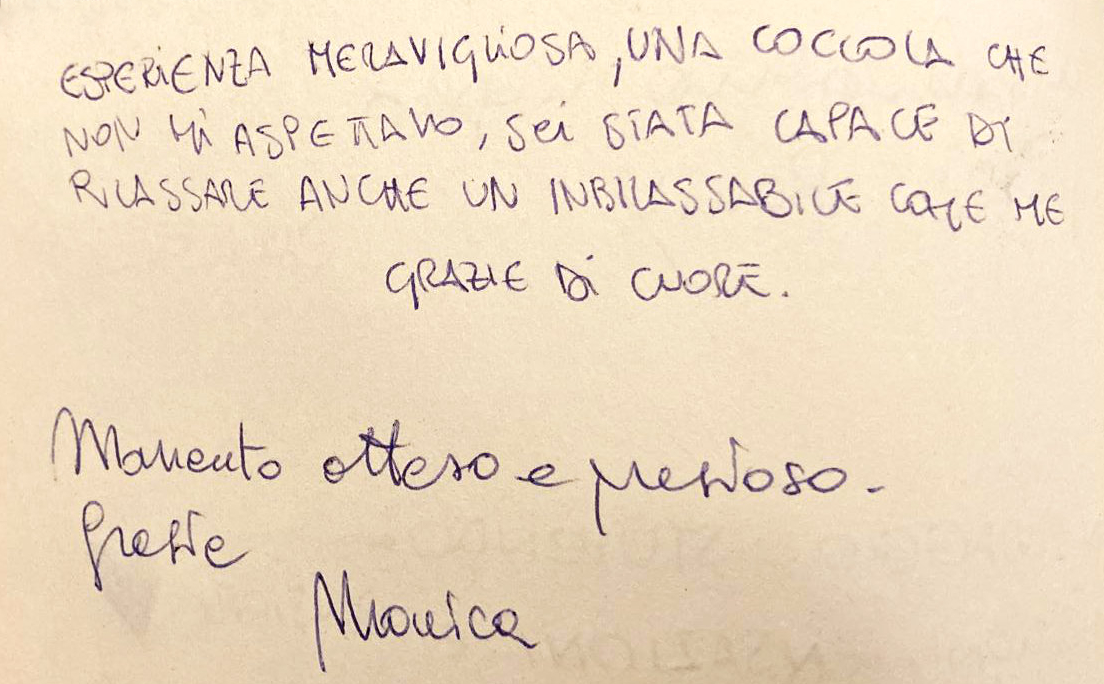 ESPERIENZA MERAVIGLIOSA, UNA COCCOLA CHE
NON MI ASPETTAVO, SEI STATA CAPACE DI
RILASSARE ANCHE UN INRILASSABILE COME ME
GRAZIE DI CUORE.
Momento atteso e prezioso.
Grazie
Monica